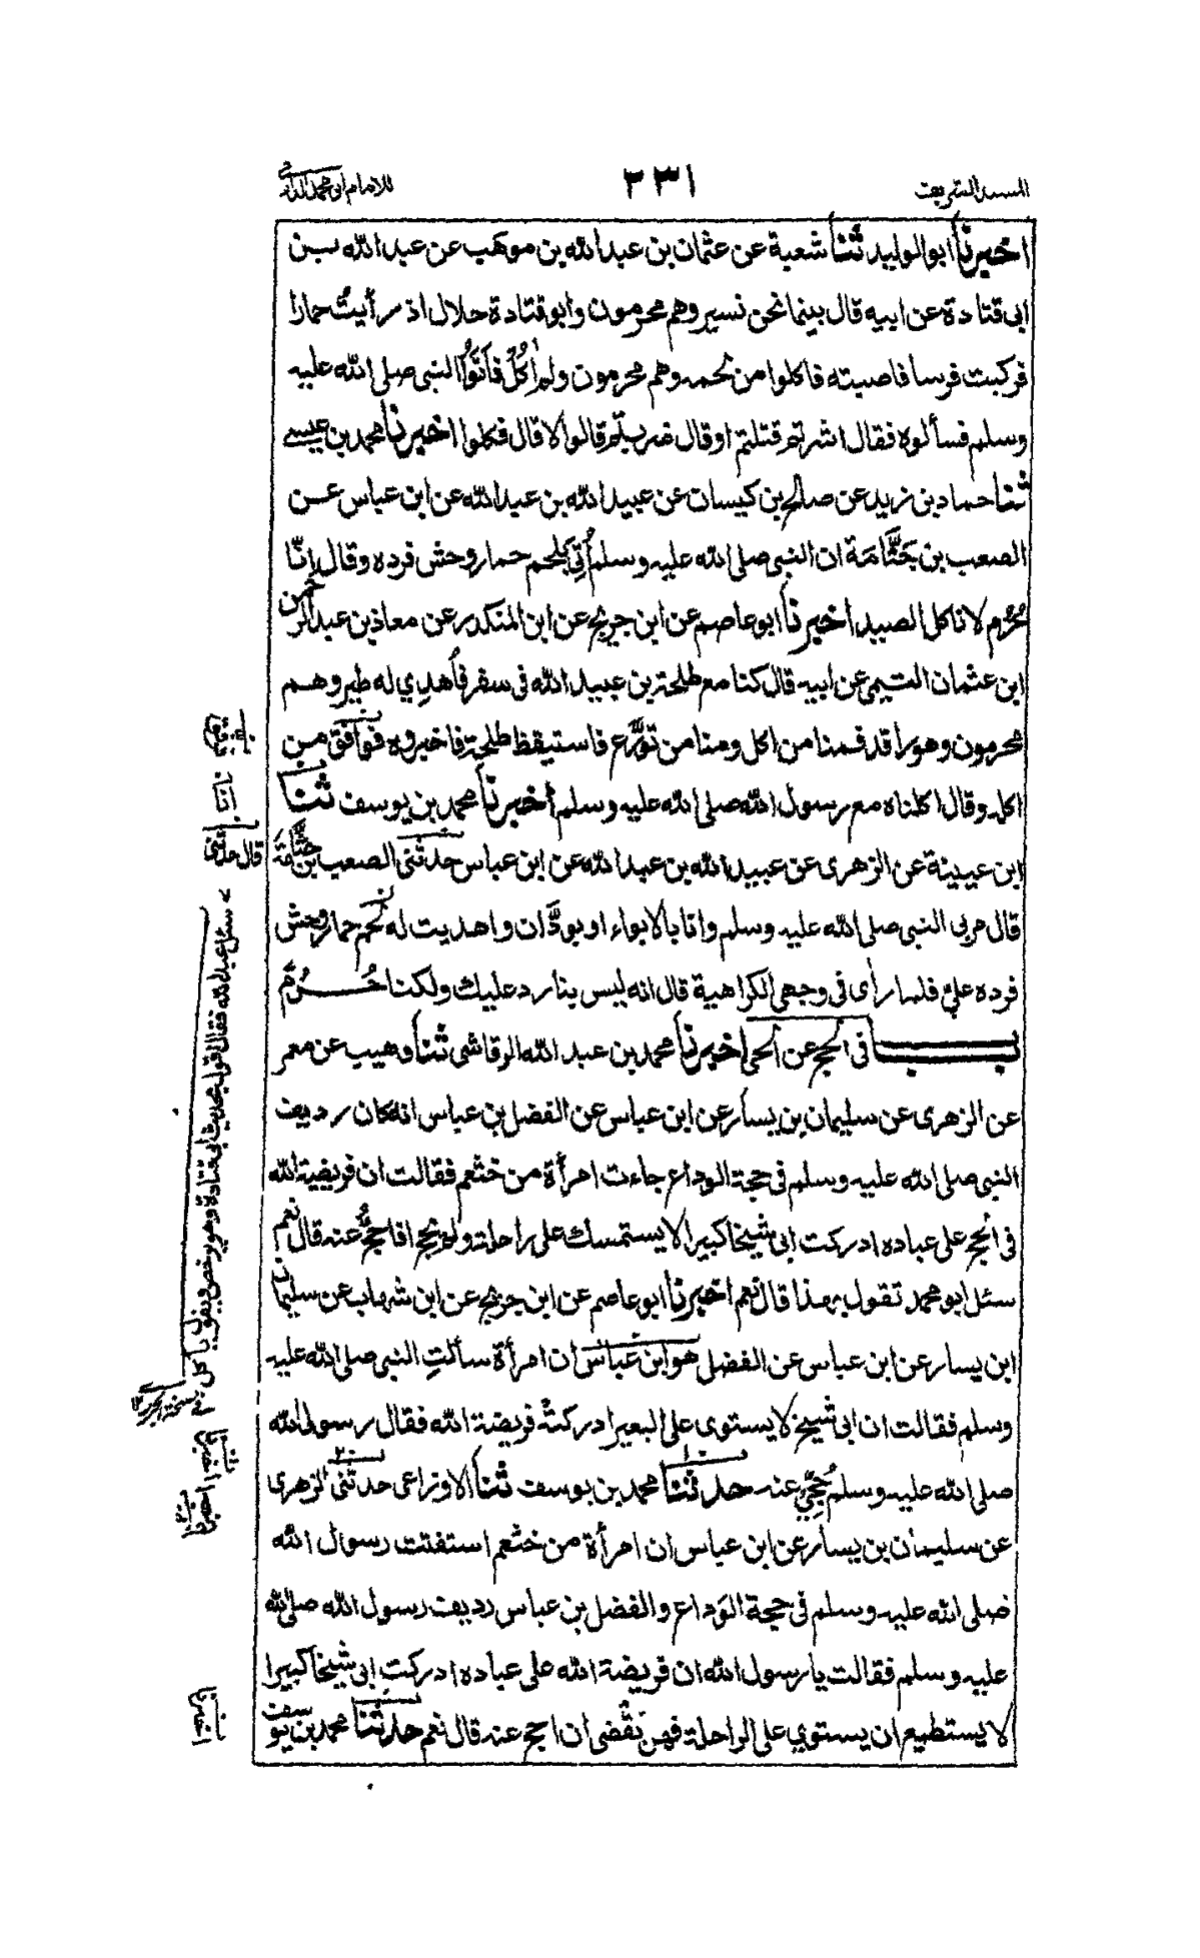 المسند الشريف
٢٣١
للامام ابى محمد الدارمى
اخبرنا ابو الوليد ثنا شعبة عن عثمان بن عبد الله بن موهب عن عبد الله بن
ابى قتادة عن ابيه قال بينما نحن نسير وهم محرمون وابو قتادة حلال اذ رأيتُ حمارا
فركبت فرسا فاصبته فاكلوا من لحمه وهم محرمون ولم اٰكُلْ فَاَتَوُا النبى صلى الله عليه
وسلم فسألوه فقال اشرتم قتلتم او قال ضربتم قالوا لا قال فكلوا اخبرنا محمد بن عيسى
ثنا حماد بن زيد عن صالح بن كيسان عن عبيد الله بن عبد الله عن ابن عباس عن
الصعب بن جَثَّامَة ان النبى صلى الله عليه وسلم اُتِىَ بلحم حمار وحش فرده وقال اِنّا
حُرُم لا ناكل الصيد اخبرنا ابو عاصم عن ابن جريج عن ابن المنكدر عن معاذ بن عبد الرحمن
ابن عثمان التيمى عن ابيه قال كنا مع طلحة بن عبيد الله فى سفر فاُهدِي له طير وهم
محرمون وهو راقد فمنا من اكل ومنا من تورَّع فاستيقظ طلحة فاخبروه فوافق من
اكله وقال اكلناه مع رسول الله صلى الله عليه وسلم اخبرنا محمد بن يوسف ثنا
ابن عيينة عن الزهرى عن عبيد الله بن عبد الله عن ابن عباس حدثنى الصعب بن جَثَّامَة
قال مر بى النبى صلى الله عليه وسلم وانا بالابواء او بودَّان واهديت له لحم حمار وحش
فرده علىّ فلما رأى فى وجهى الكراهية قال انه ليس بنا رد عليك ولكنا حُرُم
باب فى الحج عن الحى اخبرنا محمد بن عبد الله الرقاشى ثنا وهيب عن معمر
عن الزهرى عن سليمان بن يسار عن ابن عباس عن الفضل بن عباس انه كان رديف
النبى صلى الله عليه وسلم فى حجة الوداع جاءت امرأة من خثعم فقالت ان فريضة الله
فى الحج على عباده ادركت ابى شيخا كبيرا لا يستمسك على راحلة ولم يحج افاحُجُّ عنه قال نعم
سئل ابو محمد تقول بهذا قال نعم اخبرنا ابو عاصم عن ابن جريج عن ابن شهاب عن سليمان
ابن يسار عن ابن عباس عن الفضل هو ابن عباس ان امرأة سألتِ النبى صلى الله عليه
وسلم فقالت ان ابى شيخ لا يستوى على البعير ادركتْه فريضة الله فقال رسول الله
صلى الله عليه وسلم حُجِّى عنه حدثنا محمد بن يوسف ثنا الاوزاعى حدثنى الزهرى
عن سليمان بن يسار عن ابن عباس ان امرأة من خثعم استفتت رسول الله
صلى الله عليه وسلم فى حجة الوَداع والفضل بن عباس رديف رسول الله صلى الله
عليه وسلم فقالت يا رسول الله ان فريضة الله على عباده ادركت ابى شيخا كبيرا
لا يستطيع ان يستوي على الراحلة فهل تَقضى ان احج عنه قال نعم حدثنا محمد بن يوسف
انا
قال حدثنى
سئل عبد الله فقال اقول بحديث ابى قتادة وهو يرخص ويقول ياكل
اخبرنا
اخبرنا
اخبرنا